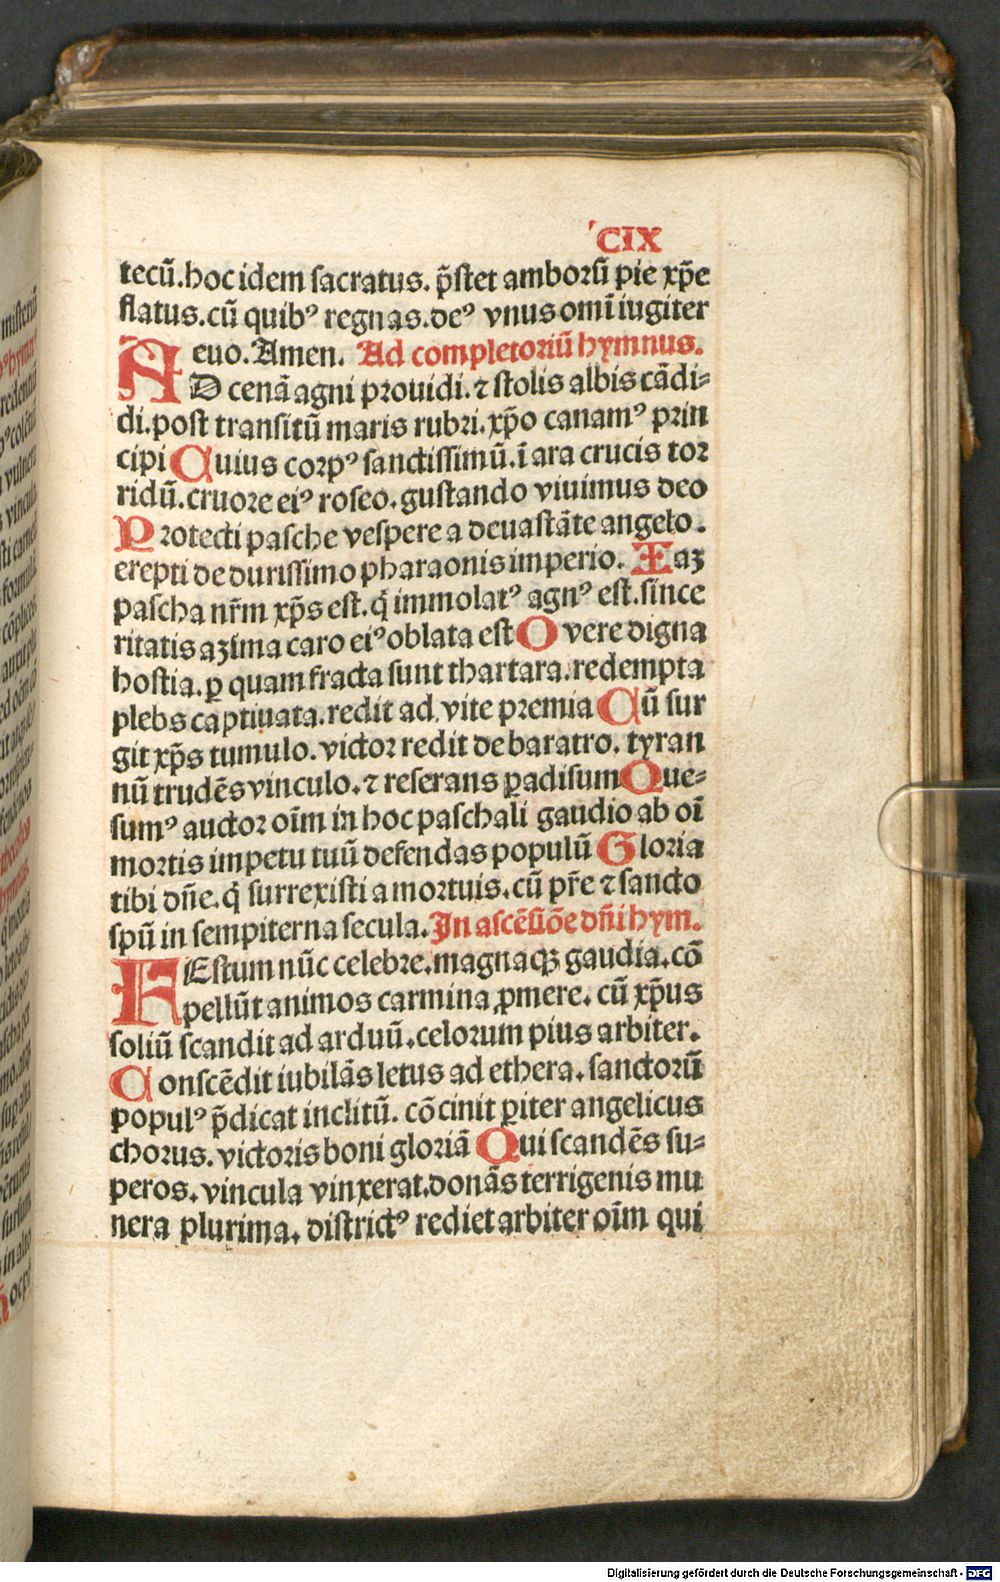 CIX
tecū.hoc idem sacratus. p̄stet amborū pie xp̄e
flatus.cū quibꝰ regnas.deꝰ vnus omī iugiter
euo. Amen. Ad completoriū hymnus.
AD cenā agni prouidi. ⁊ stolis albis cādi⸗
di.post transitū maris rubri.xp̄o canamꝰ prin
cipi Cuius corpꝰ sanctissimū.ī ara crucis tor
ridū.cruore eiꝰ roseo.gustando viuimus deo
Protecti pasche vespere a deuastāte angelo.
erepti de durissimo pharaonis imperio. Iaꝫ
pascha nr̄m xp̄s est.q̄ immolatꝰ agnꝰ est.since
ritatis azima caro eiꝰ oblata est O vere digna
hostia.ꝑ quam fracta sunt thartara.redempta
plebs captiuata.redit ad vite premia Cū sur
git xp̄s tumulo.victor redit de baratro. tyran
nū trudēs vinculo.⁊ reserans ꝑadisum Que⸗
sumꝰ auctor oīm in hoc paschali gaudio ab oī
mortis impetu tuū defendas populū Gloria
tibi dn̄e.q̄ surrexisti a mortuis.cū pr̄e ⁊ sancto
spū in sempiterna secula. In ascēsiōe dn̄i hym.
FEstum nūc celebre.magnaqꝫ gaudia.cō
pellūt animos carmina ꝓmere. cū xp̄us
soliū scandit ad arduū.celorum pius arbiter.
Conscēdit iubilās letus ad ethera. sanctorū
populꝰ p̄dicat inclitū. cōcinit ꝑiter angelicus
chorus. victoris boni gloriā Qui scandēs su⸗
peros. vincula vinxerat.donās terrigenis mu
nera plurima. districtꝰ rediet arbiter oīm qui
Digitalisierung gefördert durch die Deutsche Forschungsgemeinschaft - DFG